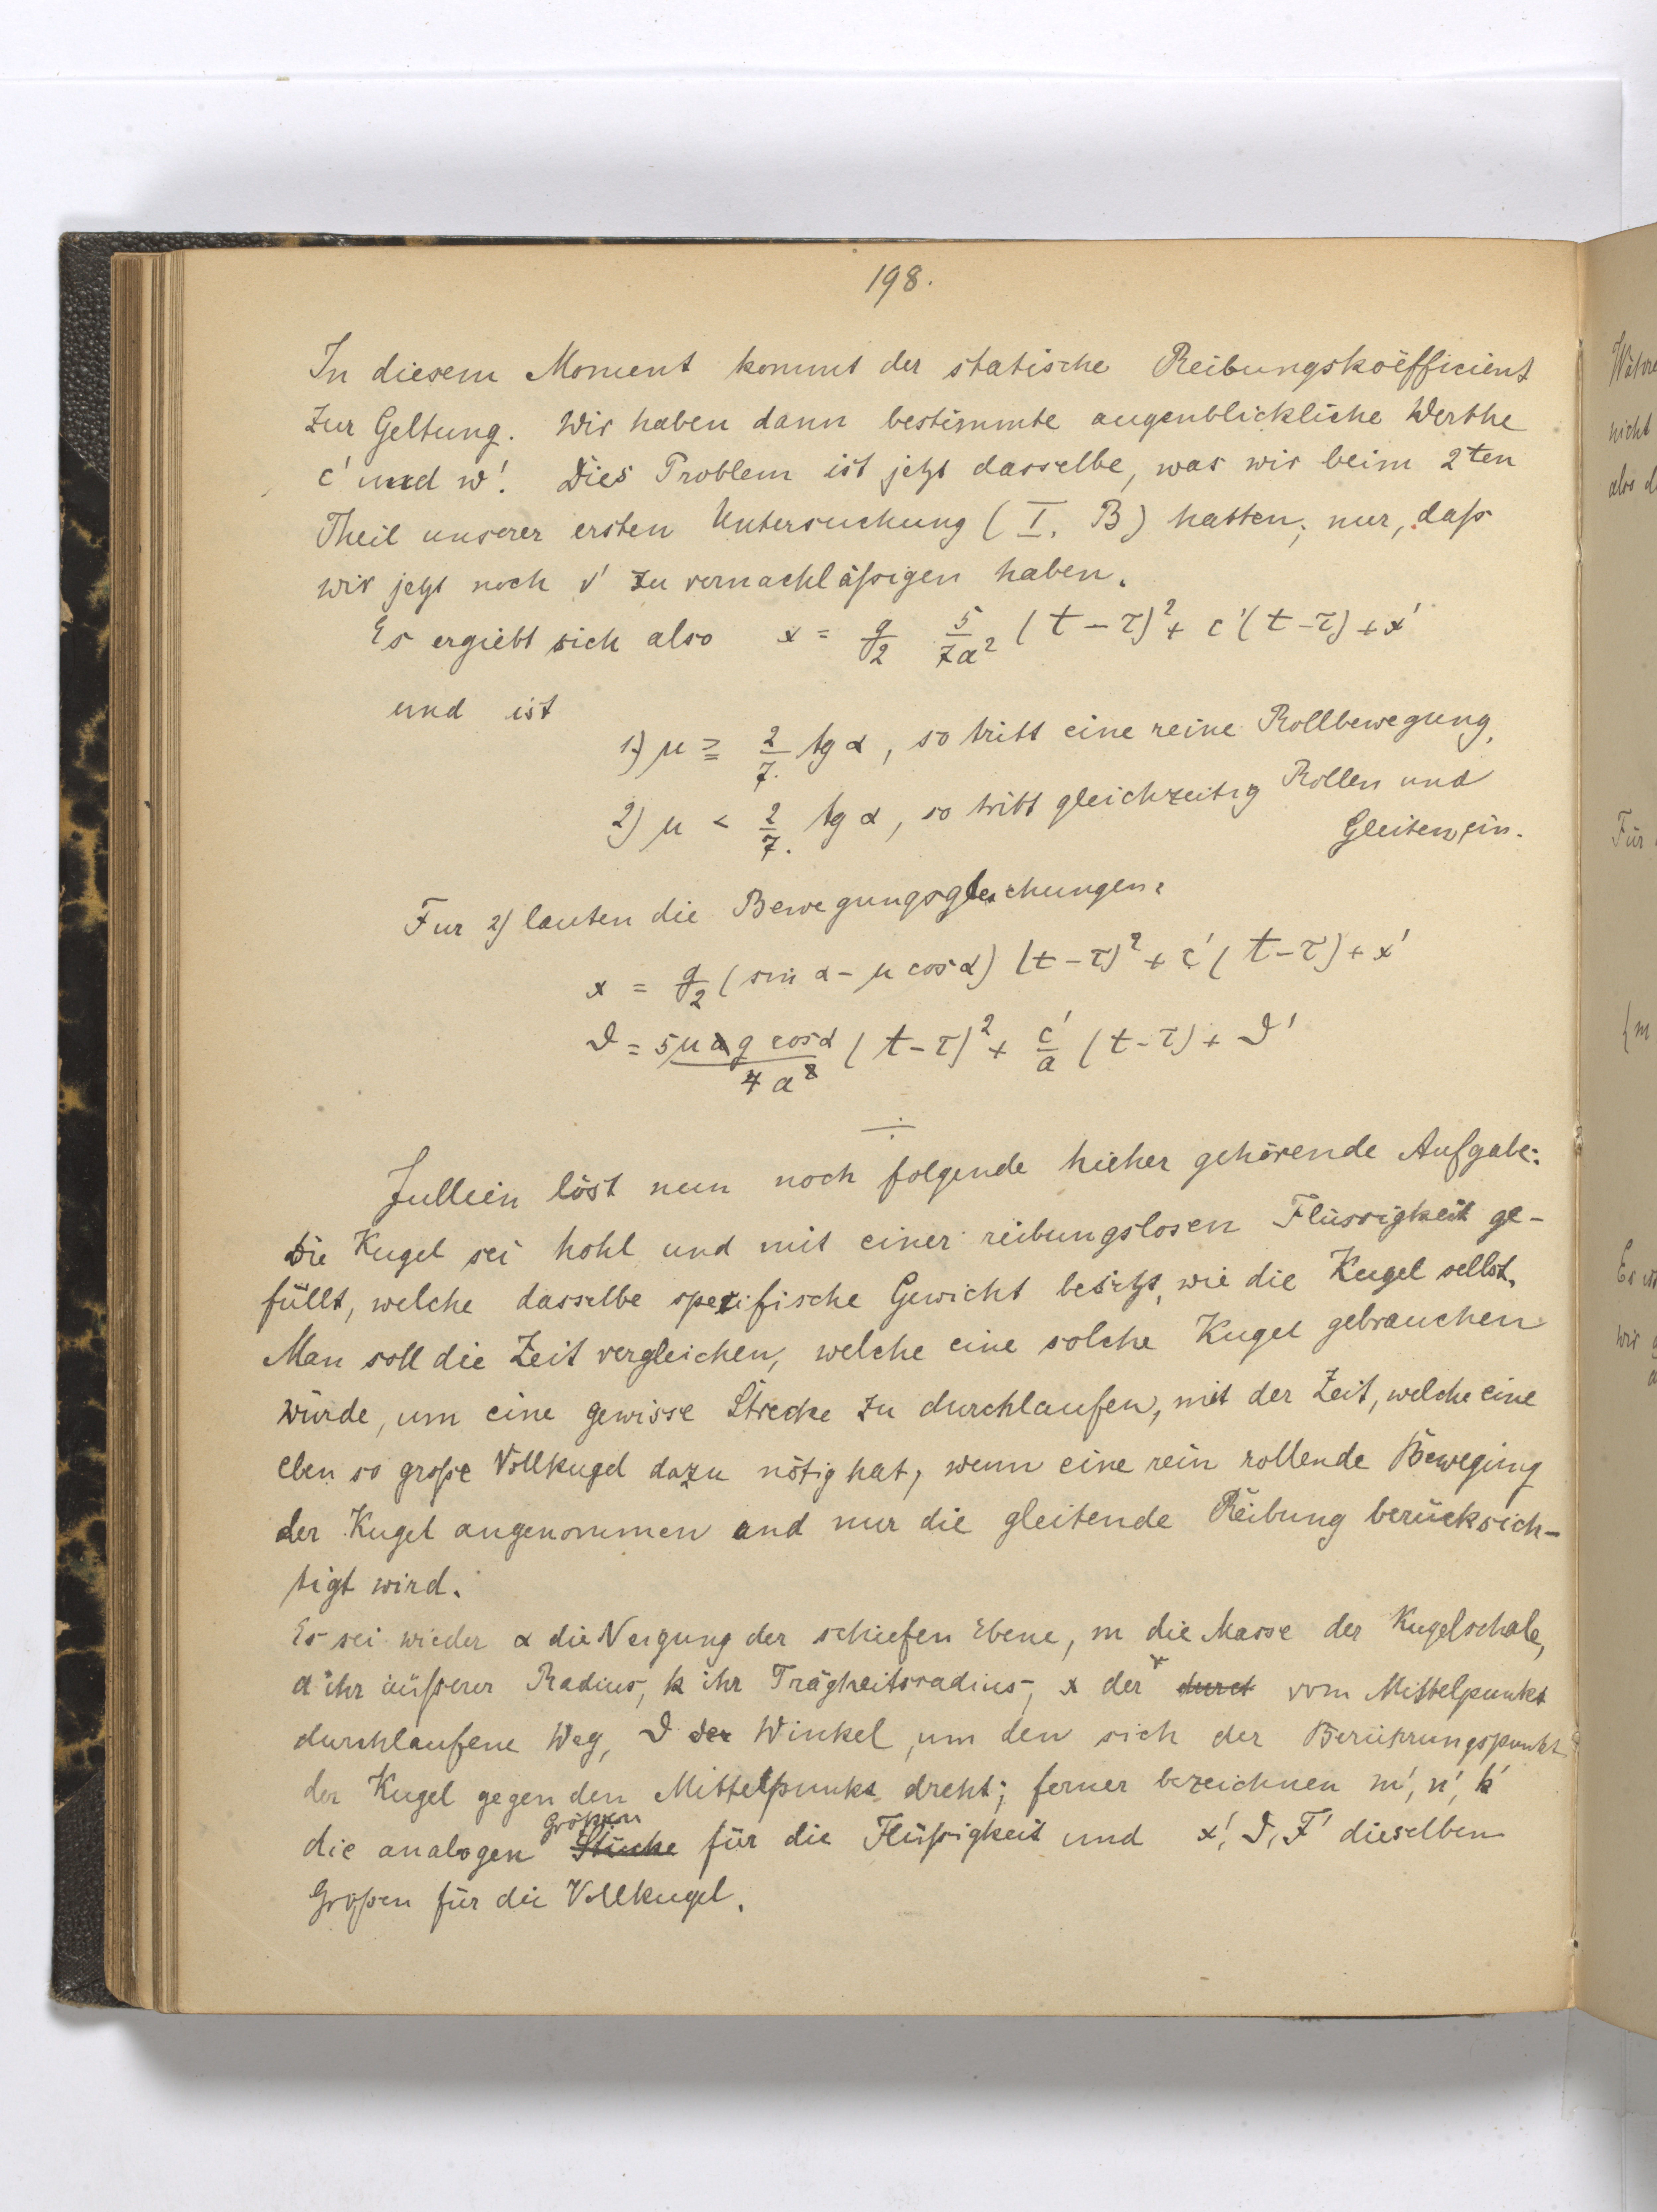 198.
In diesem Moment kommt der statische Reibungskoëfficient
zur Geltung. Wir haben dann bestimmte augenblickliche Werthe
c' und w'. Dies Problem ist jetzt dasselbe, was wir beim 2ten
Theil unserer ersten Untersuchung (I. B) hatten; nur, daſs
wir jetzt noch v' zu vernachläſsigen haben.
Es ergiebt sich also x = g/2 5/7a² (t-τ)² + c'(t-τ) + x'
und ist
1) μ ≧ 2/7. tg α, so tritt eine reine Rollbewegung,
2) μ < 2/7. tg α, so tritt gleichzeitig Rollen und
Gleiten ein.
Fur 2) lauten die Bewegungsgleichungen:
x = g/2 (sin α - μ cos α) (t-τ)² + c' (t-τ) + x'
ϑ = 5μag cosα / 4a² (t-τ)² + c'/a (t-τ) + ϑ'
Jullien löst nun noch folgende hieher gehörende Aufgabe:
Die Kugel sei hohl und mit einer reibungslosen Flüssigkeit ge-
füllt, welche dasselbe spezifische Gewicht besitzt, wie die Kugel selbst.
Man soll die Zeit vergleichen, welche eine solche Kugel gebrauchen
würde, um eine gewisse Strecke zu durchlaufen, mit der Zeit, welche eine
eben so groſse Vollkugel dazu nötig hat, wenn eine rein rollende Bewegung
der Kugel angenommen und nur die gleitende Reibung berücksich-
tigt wird.
Es sei wieder α die Neigung der schiefen Ebene, m die Masse der Kugelschale,
a ihr äuſserer Radius, k ihr Trägheitsradius, x der durct vom Mittelpunkt
durchlaufene Weg, ϑ der Winkel, um den sich der Berührungspunkt
der Kugel gegen den Mittelpunkt dreht; ferner bezeichnen m', n', k'
die analogen Stücke Gröſsen für die Flüſsigkeit und x', ϑ, F' dieselben
Gröſsen für die Vollkugel.